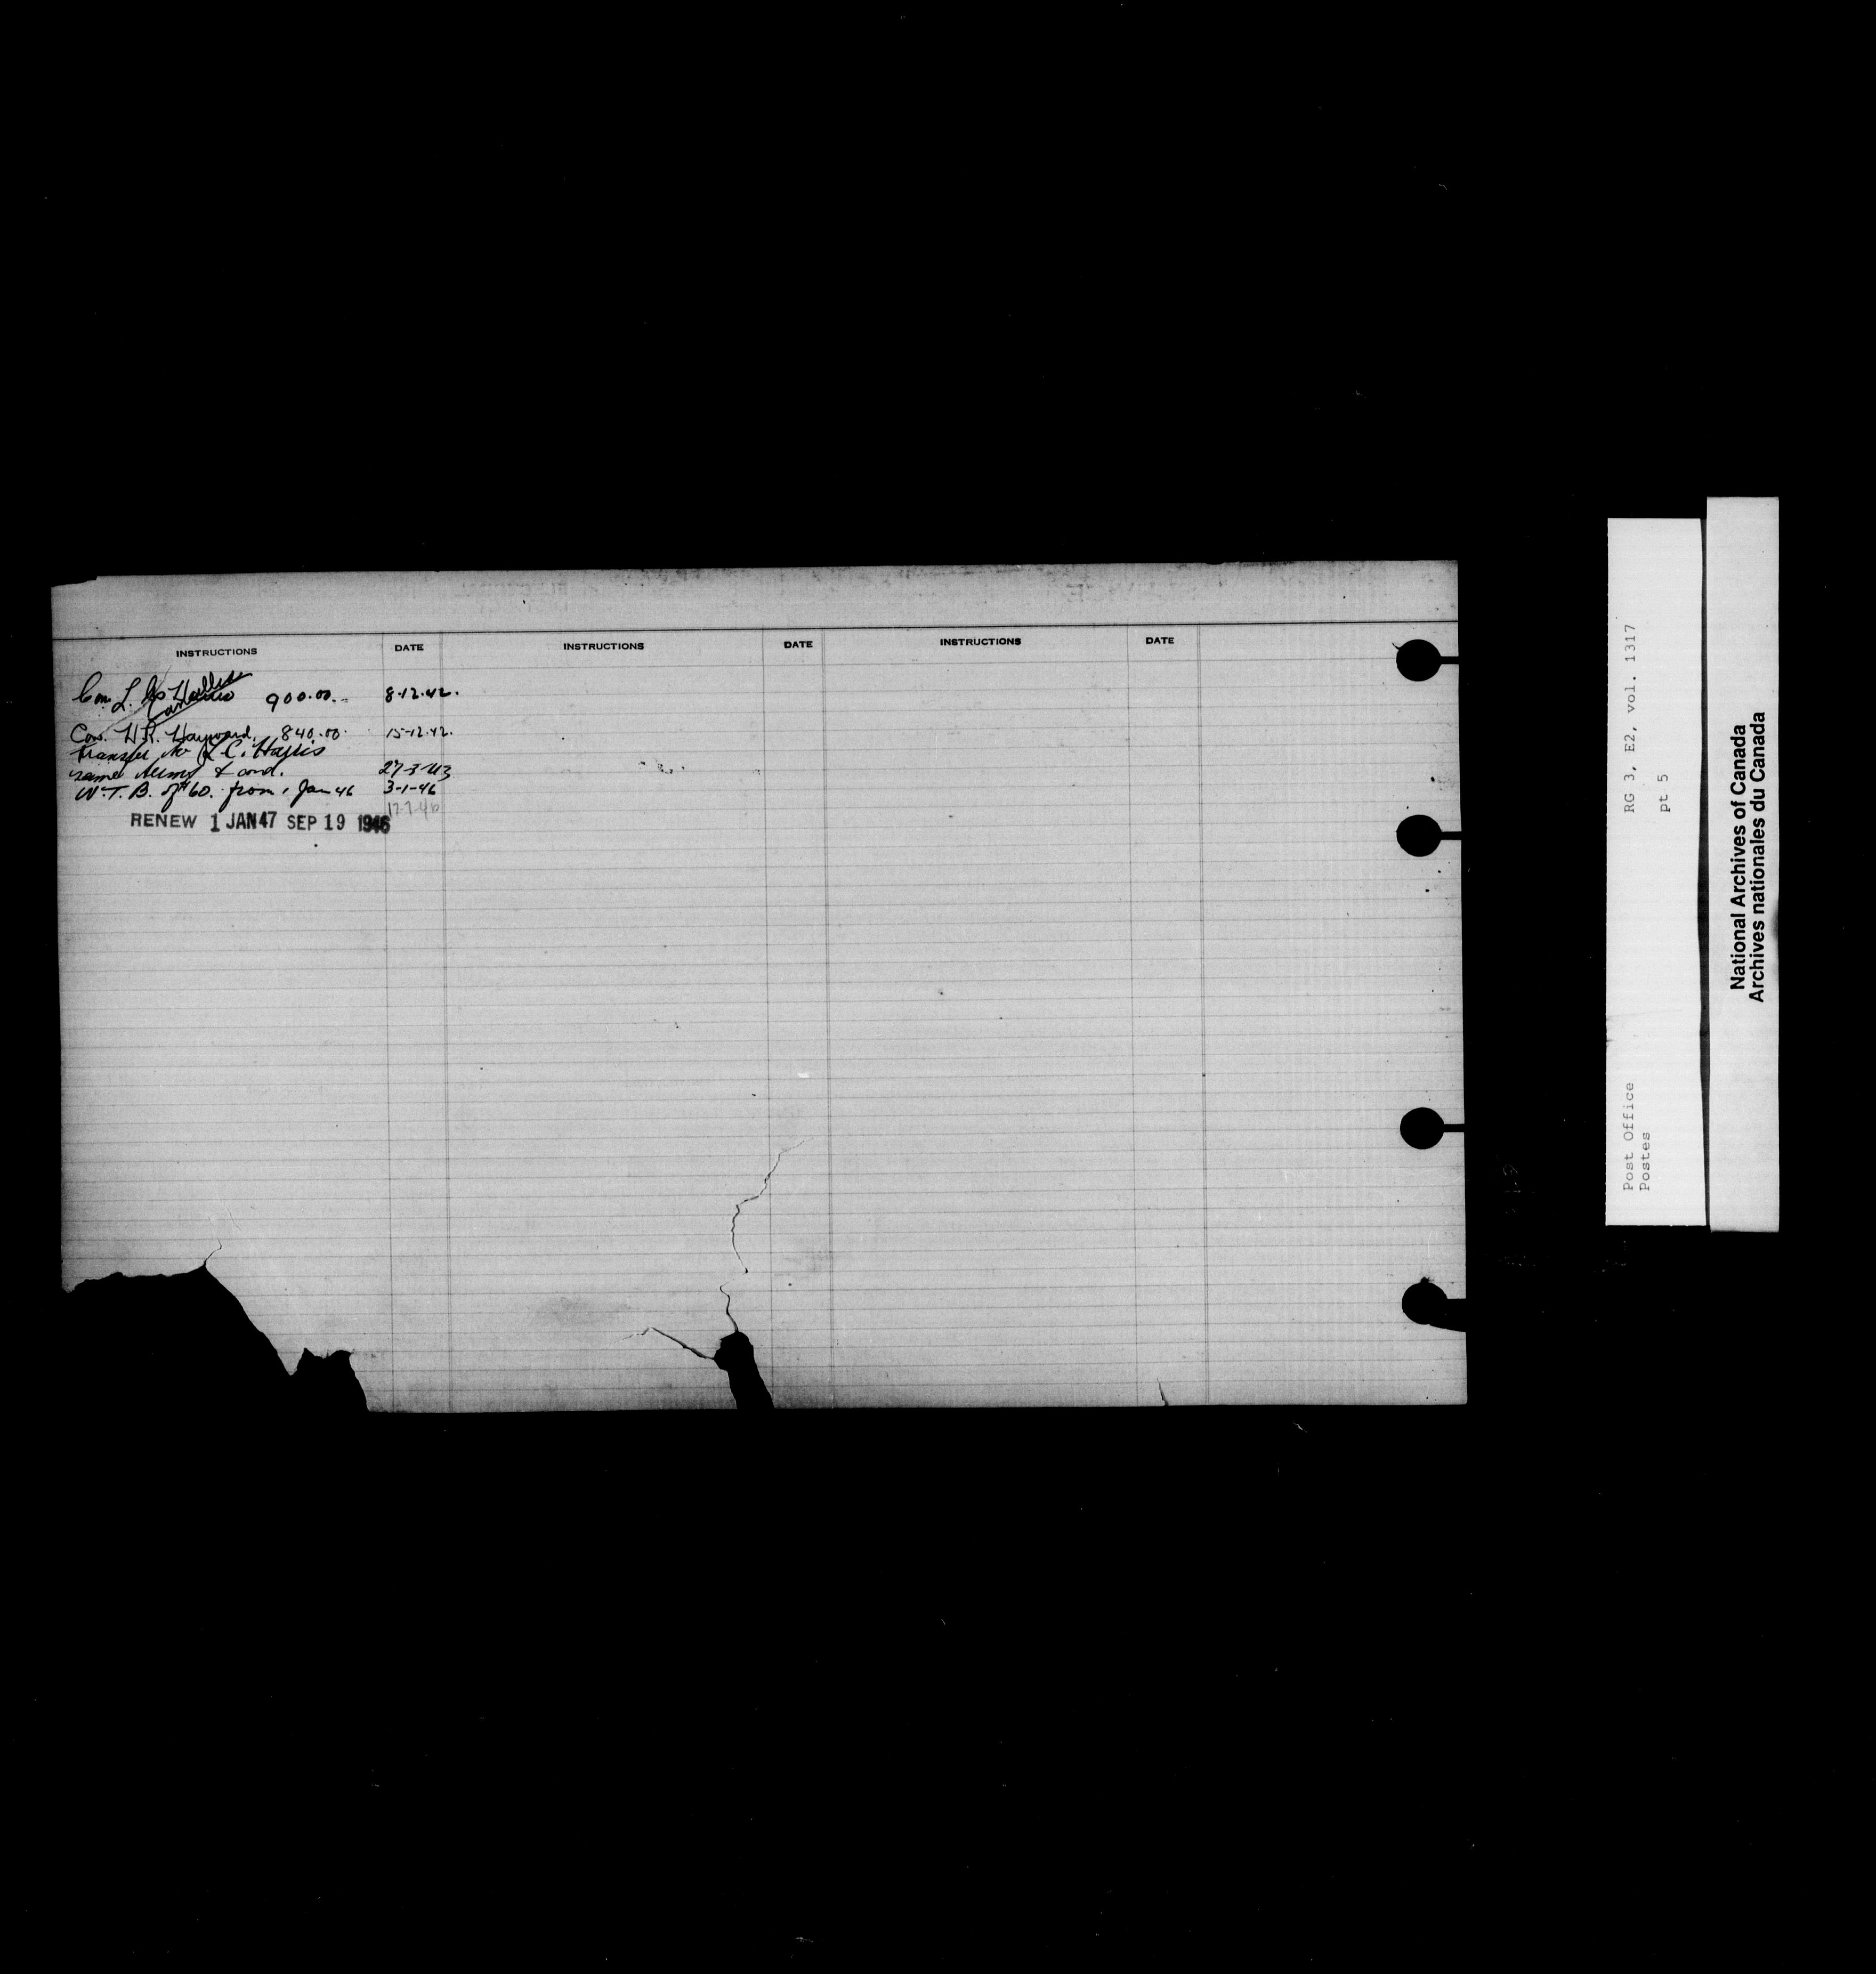 INSTRUCTIONS DATE INSTRUCTIONS DATE INSTRUCTIONS DATE
Con. L. 900.00.- 8-12.42.
Cancelled
Con. H.R. Hayward. 840.00. 15-12.42.
Transfer to L.C. Harris
same terms & cond. 27-3-43
W.T.B. of $60. from 1 Jan 46 3-1-46
RENEW 1 JAN 47 SEP 19 1946
RG 3, E2, vol. 1317
pt 5
Post Office
Postes
National Archives of Canada
Archives nationales du Canada